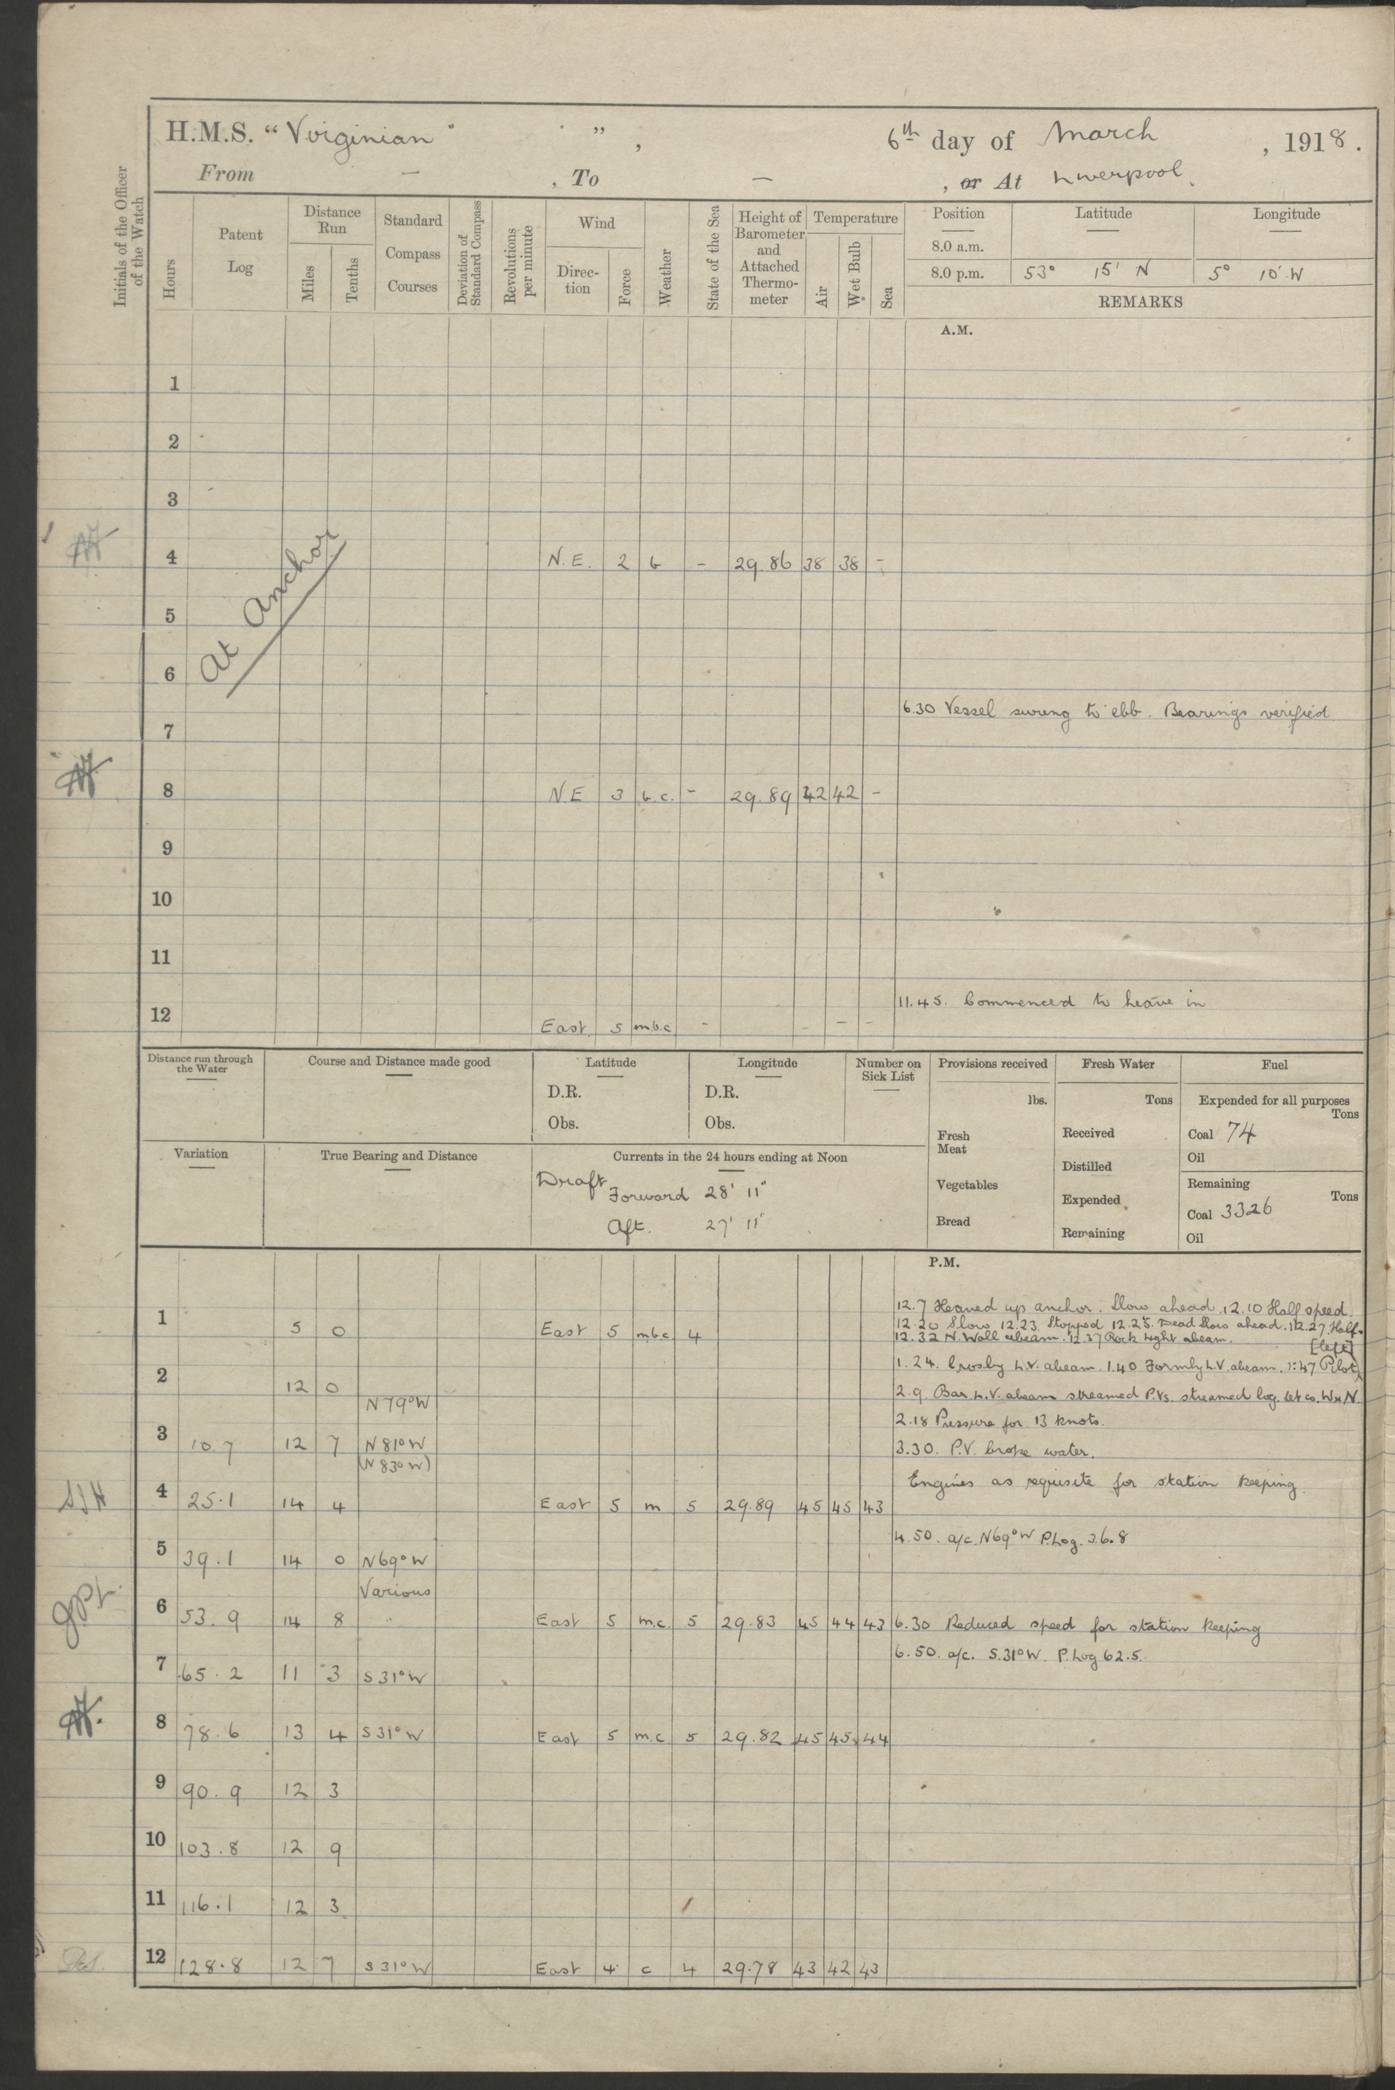 H.M.S. “Virginian” ”, 6th day of March, 1918.
From — , To — , or At Liverpool.
Initials of the Officer of the Watch
Hours
Patent Log
Distance Run
Miles
Tenths
Standard Compass Courses
Deviation of Standard Compass
Revolutions per minute
Wind
Direc-tion
Force
Weather
State of the Sea
Height of Barometer and Attached Thermo-meter
Temperature
Air
Wet Bulb
Sea
Position Latitude Longitude
8.0 a.m.
8.0 p.m. 53° 15' N 5° 10' W
REMARKS
A.M.
1
2
3
4 N.E. 2 b - 29.86 38 38 -
5
At Anchor
6
6.30 Vessel swung to ebb. Bearings verified
7
8 N E 3 b.c. - 29.89 42 42 -
9
10
11
11.45. Commenced to heave in
12 East 5 m.b.c - - - -
Distance run through the Water
Course and Distance made good
Latitude
D.R.
Obs.
Longitude
D.R.
Obs.
Number on Sick List
Provisions received
lbs.
Fresh Meat
Vegetables
Bread
Fresh Water
Tons
Received
Distilled
Expended
Remaining
Fuel
Expended for all purposes
Tons
Coal 74
Oil
Remaining
Tons
Coal 3326
Oil
Variation
True Bearing and Distance
Currents in the 24 hours ending at Noon
Draft Forward 28' 11"
Aft. 27' 11"
P.M.
12.7 Heaved up anchor. Slow ahead. 12.10 Half speed.
1 5 0 East 5 mbc 4
12.20 Slow 12.23 Stopped 12.25. Dead Slow ahead. 12.27. Half.
12.32 N. Wall abeam. 12.37 Rock Light abeam.
[left]
1.24. Crosby L.V. abeam. 1.40 Formby L.V. abeam. 1:47 Pilot
2 12 0
2.9. Bar L.V. abeam streamed P.Vs. streamed log. set co. W x N.
N 79° W
2.18 Pressure for 13 knots.
3 10.7 12 7 N 81° W
(N 83° W)
3.30. P.V. broke water.
Engines as requisite for station keeping.
4 25.1 14 4 East 5 m 5 29.89 45 45 43
4.50. a/c. N69°W P.Log. 36.8
5 39.1 14 0 N 69° W
Various
6 53.9 14 8 East 5 m.c. 5 29.83 45 44 43
6.30 Reduced speed for station keeping
6.50. a/c. S.31°W. P.Log 62.5.
7 65.2 11 3 S 31° W
8 78.6 13 4 S 31° W East 5 m.c 5 29.82 45 45 44
9 90.9 12 3
10 103.8 12 9
11 116.1 12 3
12 128.8 12 7 S 31° W East 4 c 4 29.78 43 42 43